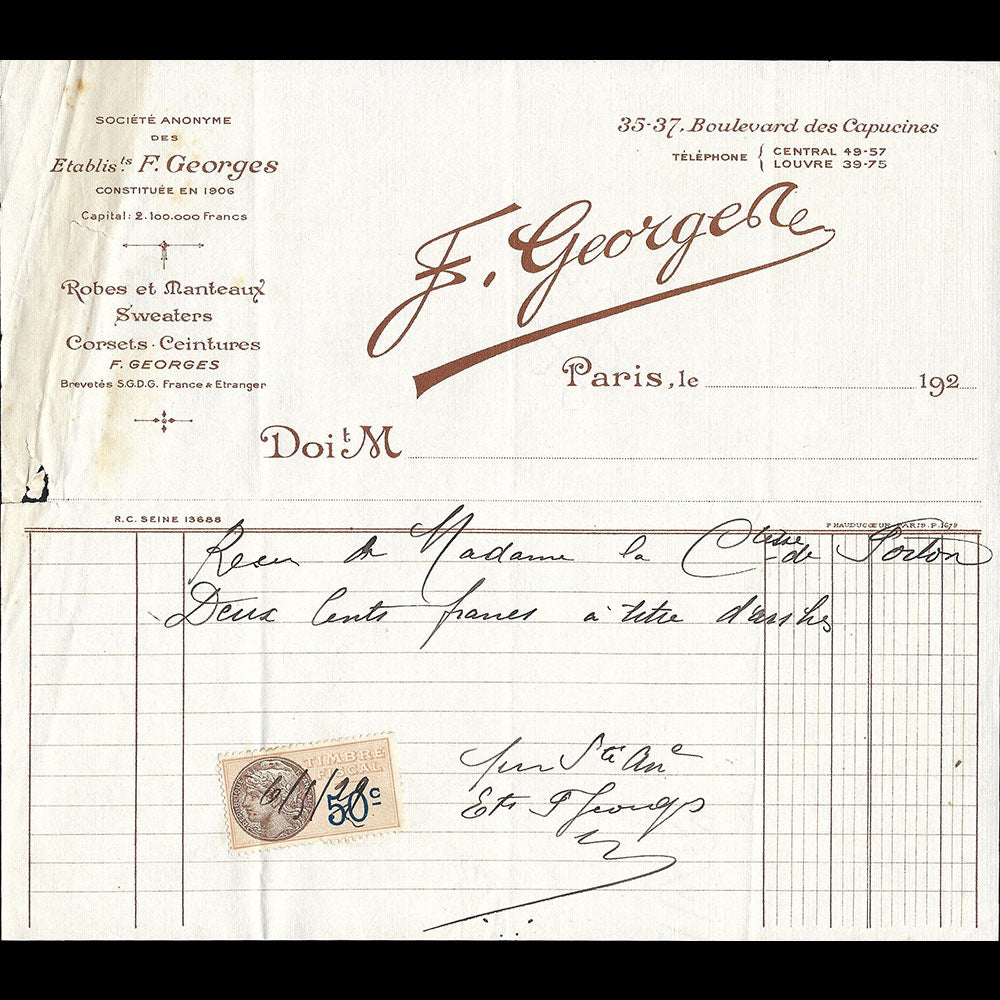 SOCIÉTÉ ANONYME
DES
Etablis.ts F. Georges
CONSTITUÉE EN 1906
Capital: 2.100.000 Francs
Robes et Manteaux
Sweaters
Corsets · Ceintures
F. GEORGES
Brevetés S.G.D.G. France & Etranger
35-37, Boulevard des Capucines
TÉLÉPHONE { CENTRAL 49-57
LOUVRE 39-75
F. Georges
Paris, le 192
Doit M
R.C. SEINE 13688
P. HAUDUCŒUR. PARIS. P. 1679
Recu de Madame la Ctesse de
Deux Cents francs à titre d'arrhes
TIMBRE
FISCAL
50c
pour Sté Ane
Ets F Georges